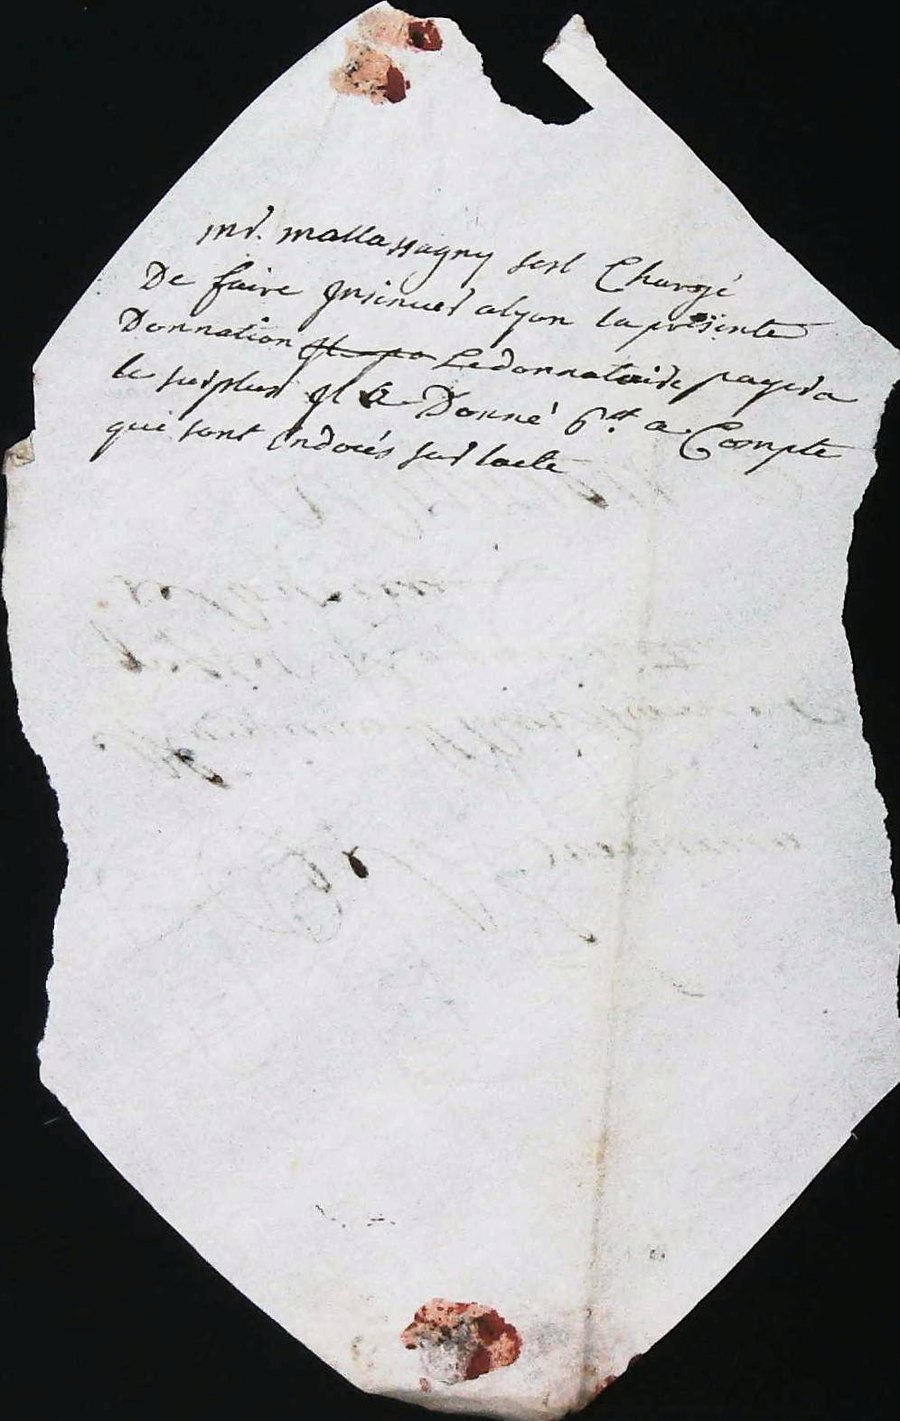 mr. mallassagny sest Chargé
De faire Insinuer alyon la présente
Donnation Il a Le donnataire payera
le surplus Il a Donné 6tt a Compte
qui sont Endorés sur lacte